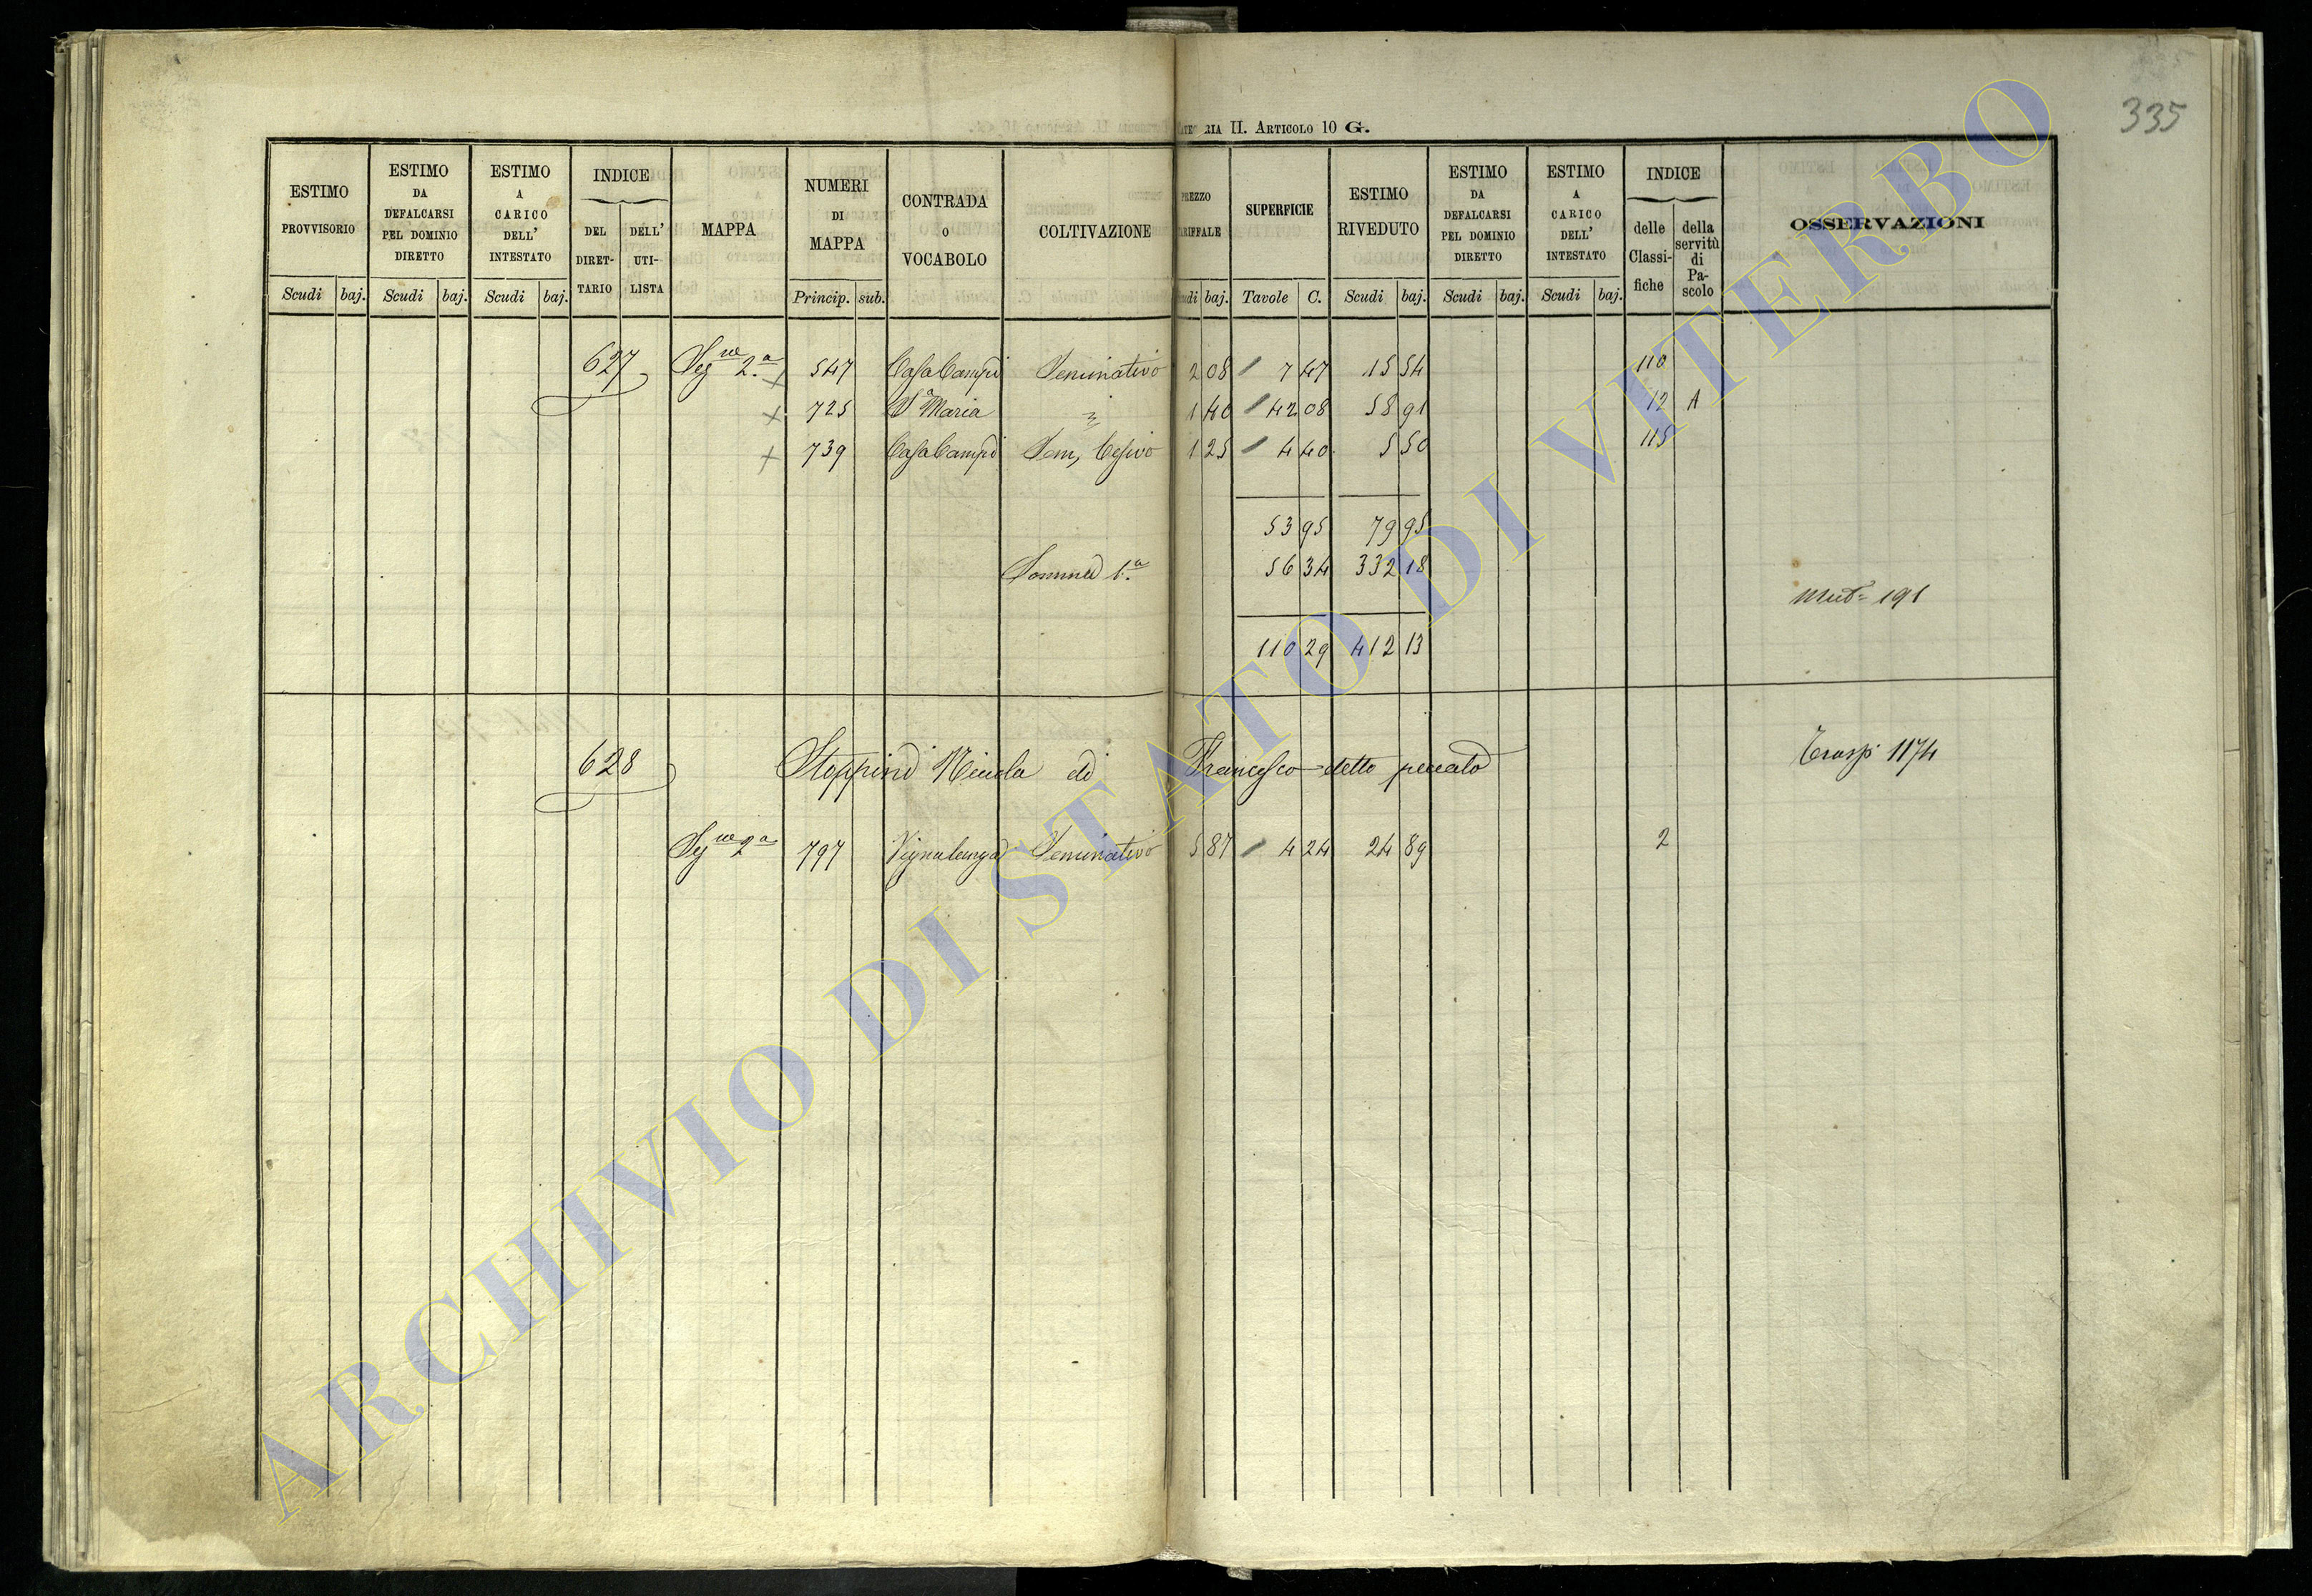 335
RIA II. ARTICOLO 10 G.
ESTIMO PROVVISORIO
ESTIMO DA DEFALCARSI PEL DOMINIO DIRETTO
ESTIMO A CARICO DELL' INTESTATO
INDICE
DEL DIRET-TARIO
DELL' UTI-LISTA
MAPPA
NUMERI DI MAPPA
CONTRADA O VOCABOLO
COLTIVAZIONE
REZZO RIFFALE
SUPERFICIE
ESTIMO RIVEDUTO
ESTIMO DA DEFALCARSI PEL DOMINIO DIRETTO
ESTIMO A CARICO DELL' INTESTATO
INDICE
delle Classi-fiche
della servitù di Pa-scolo
OSSERVAZIONI
Scudi baj. Scudi baj. Scudi baj. Princip. sub. udi baj. Tavole C. Scudi baj. Scudi baj. Scudi baj.
627 Seg ne 2.a 547 Casa Campi Seminativo 2 08 7 47 15 54 110
725 Sa Maria " 1 40 42 08 58 91 12 A
739 Casa Campi Sem, Cesivo 1 25 4 40 5 50 115
53 95 79 95
Somma 1.a 56 34 332 18
Mut= 191
110 29 412 13
628 Stoppini Nicola di Francesco detto peccato Trasp. 1174
Seg ne 2a 797 Vignalunga Seminativo 5 87 4 24 24 89 2
ARCHIVIO DI STATO DI VITERBO